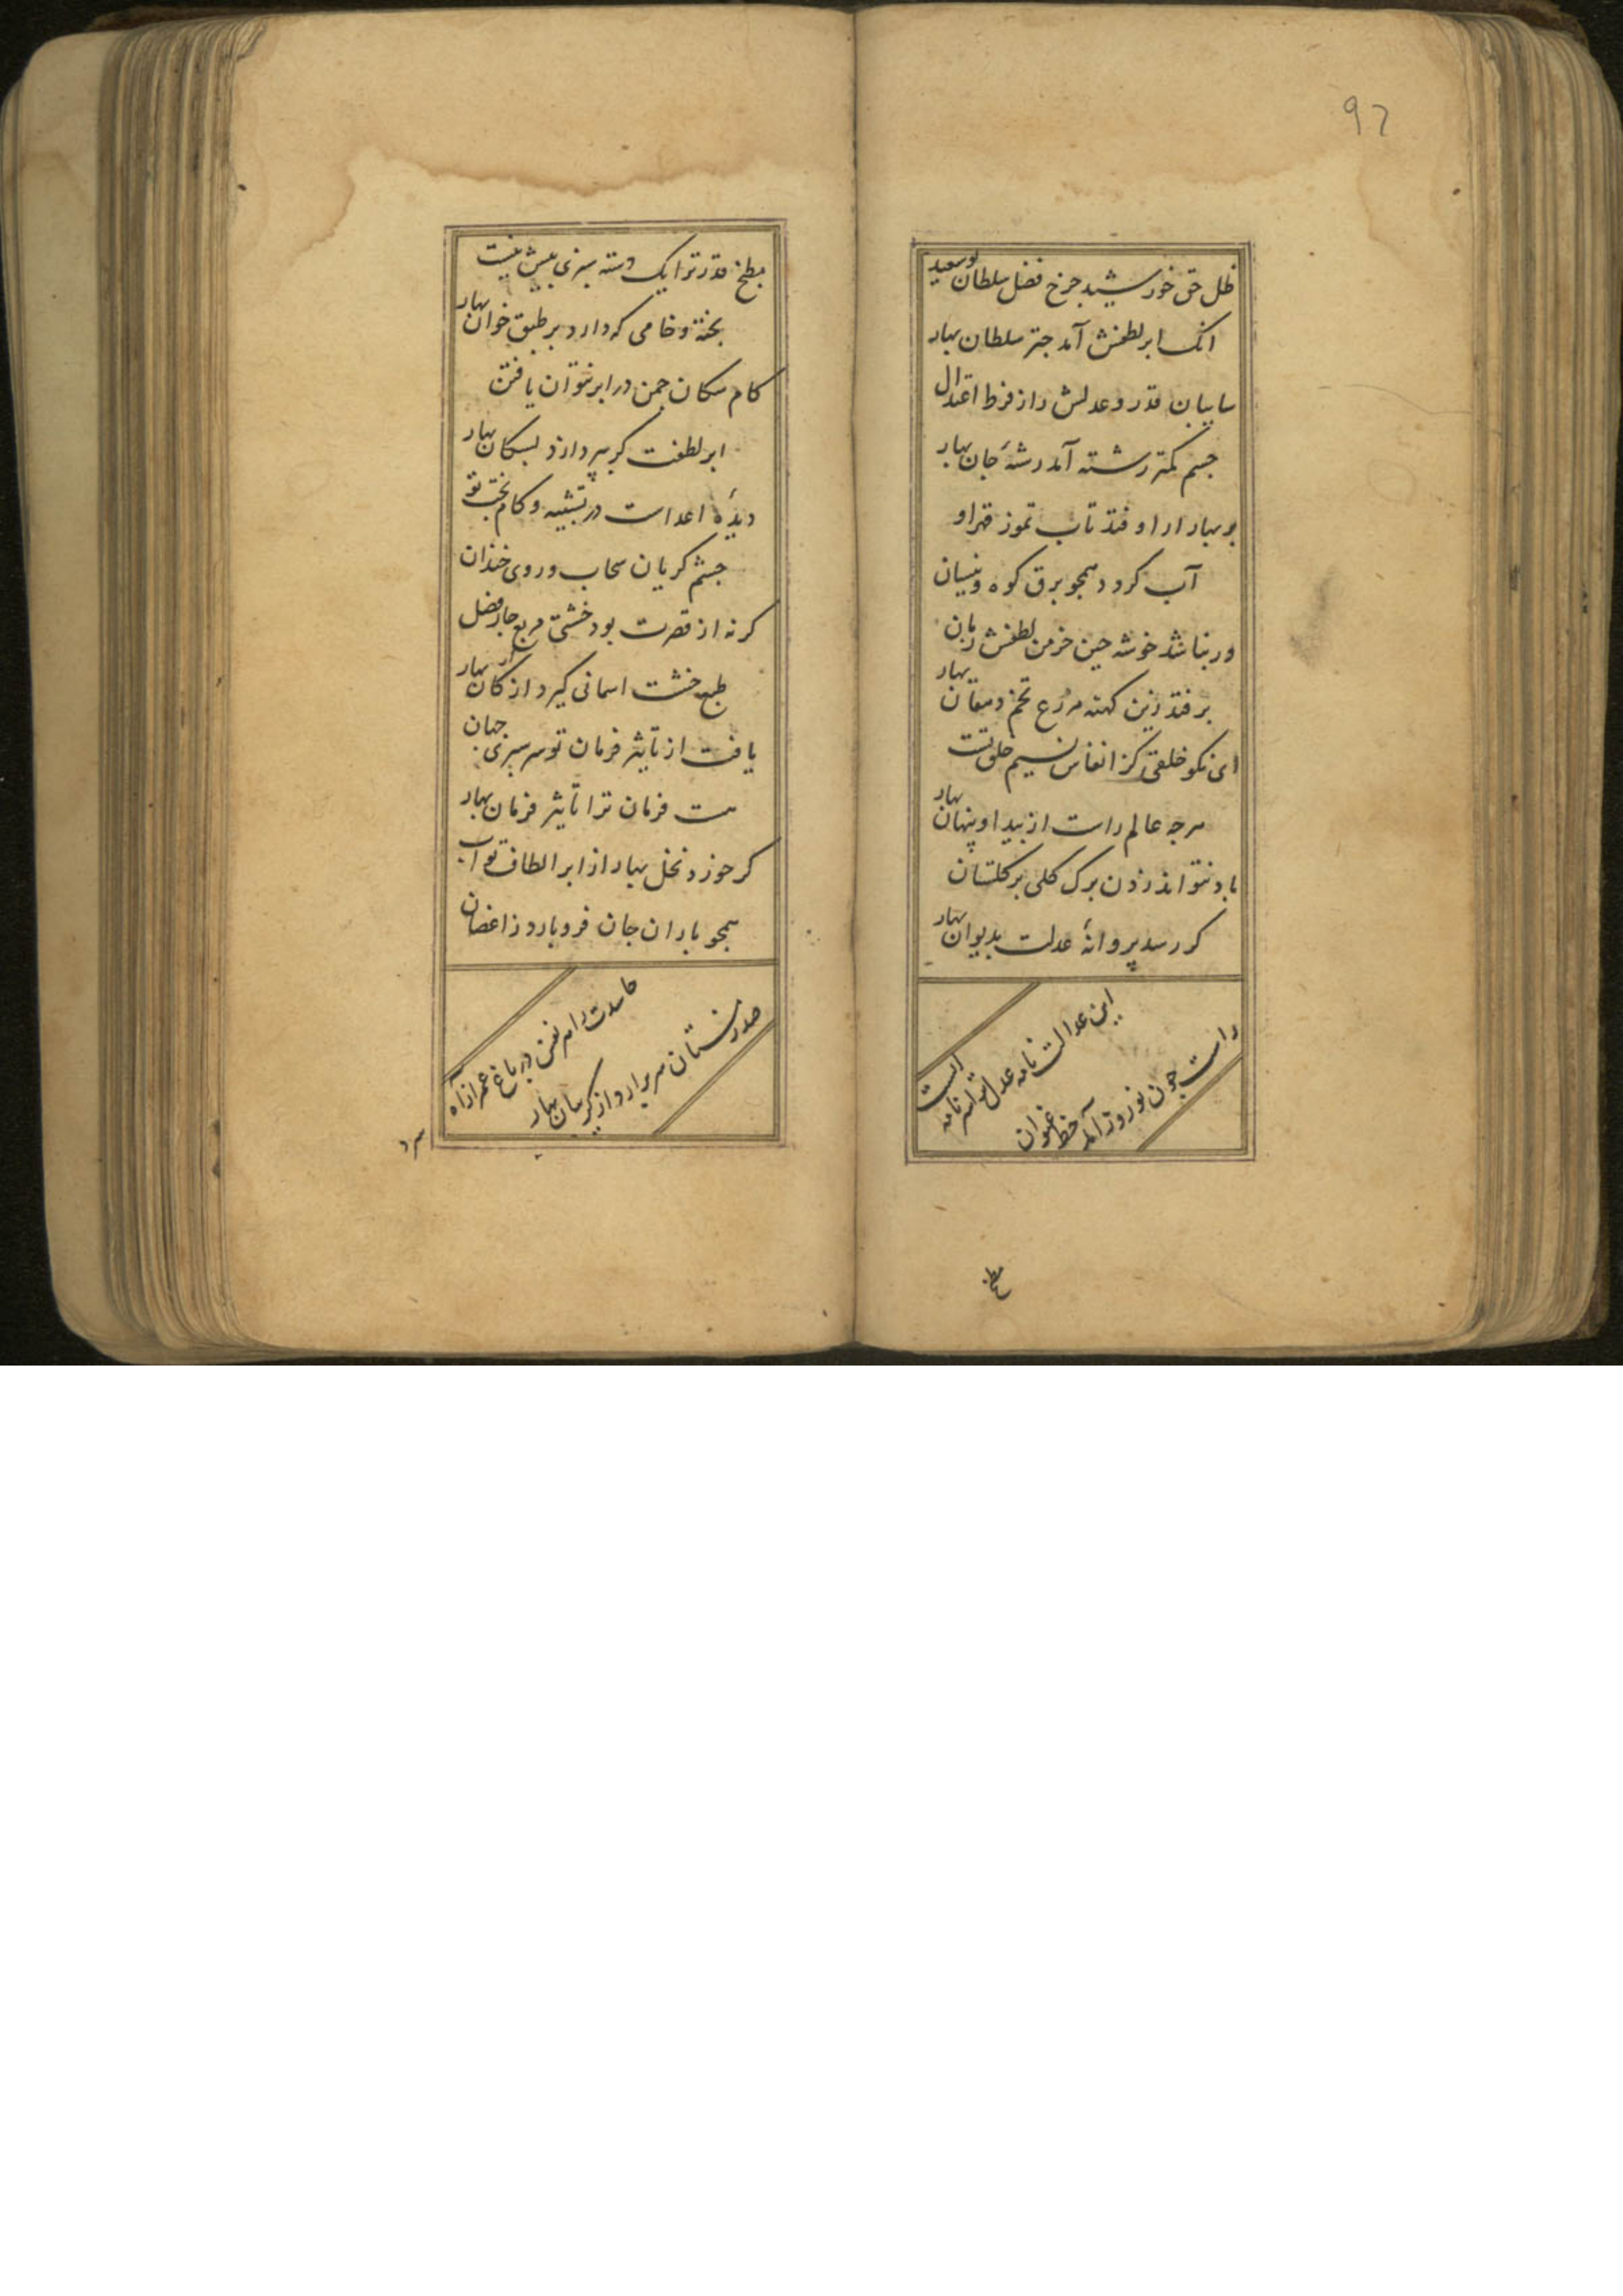 97
ظل حق خورشید چرخ فضل سلطان بوسعید
انک ابر لطفش آمد چتر سلطان بهار
سایبان قدر و عدلش را ز فرط اعتدال
جسم کمتر رشته آمد رشتهٔ جان بهار
بر بهار ار اوفتد تاب تموز قهر او
آب کردد همجو برق کوه و نیسان
ور نباشد خوشه جین خرمن لطفش زبان
بر فتد زین کهنه مزرع تخم دهقان بهار
ای نکو خلقی کز انفاس نسیم خلق تست
هرجه عالم راست از پیدا و پنهان بهار
باد نتواند زدن برک کلی بر کلستان
کر رسد پروانهٔ عدلت بدیوان بهار
این عدالت نامه عدل تو سرنامه است
راست جون نوروز آمد خط عنوان
مطبخ
مطبخ قدر ترا یک دسته سبزی بیش نیست
پخته و خامی که دارد بر طبق خوان بهار
کام سکان جمن در ابر نتوان یافتن
ابر لطفت کر نپردازد بسکان بهار
دیدهٔ اعداست در تشبیه و کام بخت تو
جشم کریان سحاب و روی خندان
کرنه از قصرت بود خشتی مربع جار فصل
طبع خشت اسمانی کیرد ارکان بهار
یافت از تأثیر فرمان تو سرسبزی جهان
هست فرمان ترا تأثیر فرمان بهار
کر خورد نخل بهار از ابر الطاف تو آب
همجو باران جان فرو بارد ز اغصان
حاسدت را هر نفس در باغ عمر از آه
صد زمستان سر برارد از کریبان بهار
سرد